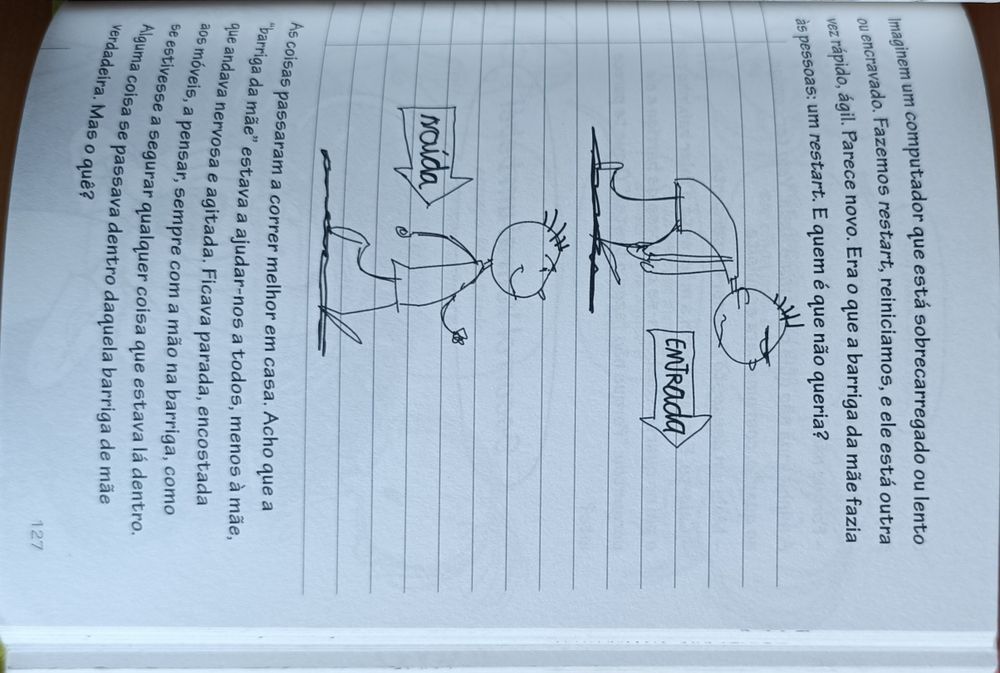 Imaginem um computador que está sobrecarregado ou lento
ou encravado. Fazemos restart, reiniciamos, e ele está outra
vez rápido, ágil. Parece novo. Era o que a barriga da mãe fazia
às pessoas: um restart. E quem é que não queria?
ENTRADA
As coisas passaram a correr melhor em casa. Acho que a
"barriga da mãe" estava a ajudar-nos a todos, menos à mãe,
que andava nervosa e agitada. Ficava parada, encostada
aos móveis, a pensar, sempre com a mão na barriga, como
se estivesse a segurar qualquer coisa que estava lá dentro.
Alguma coisa se passava dentro daquela barriga de mãe
verdadeira. Mas o quê?
127